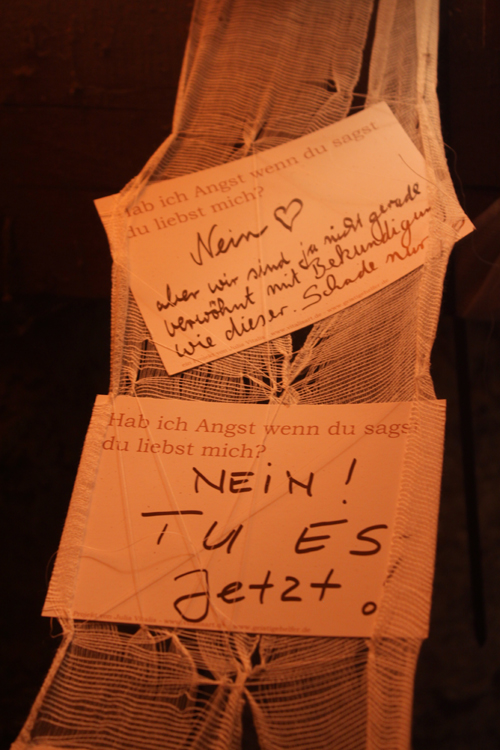 Hab ich Angst wenn du sagst
du liebst mich?
Nein ♡
aber wir sind ja nicht gerade
verwöhnt mit Bekundigun
wie dieser. Schade nur
Hab ich Angst wenn du sags
du liebst mich?
NEiN !
TU ES
Jetzt.